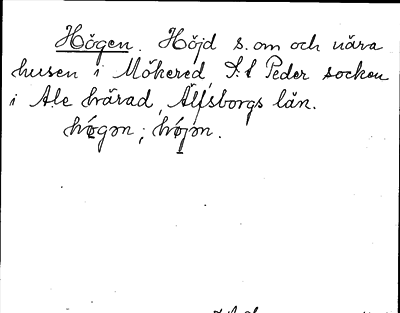 Högen. Höjd s. om och nära
husen i Mökered, S:t Peder socken
i Ale härad, Älfsborgs län.
hǿgən; hǿjən.